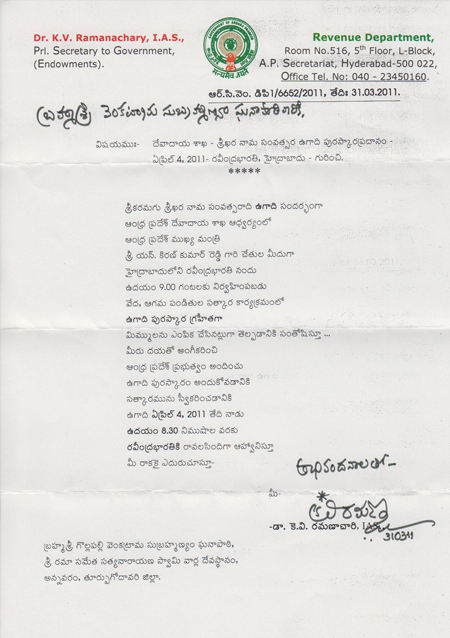 Dr. K.V. Ramanachary, I.A.S.,
Prl. Secretary to Government,
(Endowments).
Revenue Department,
Room No.516, 5th Floor, L-Block,
A.P. Secretariat, Hyderabad-500 022,
Office Tel. No: 040 - 23450160.
ఆర్.సి.నెం. డిపి1/6652/2011, తేది: 31.03.2011.
బ్రహ్మశ్రీ వెంకట్రామ సుబ్రహ్మణ్యం ఘనాపాఠిగారికి,
విషయము:- దేవాదాయ శాఖ - శ్రీఖర నామ సంవత్సర ఉగాది పురస్కారప్రదానం -
ఏప్రిల్ 4, 2011- రవీంద్రభారతి, హైద్రాబాదు - గురించి.
*****
శ్రీకరమగు శ్రీఖర నామ సంవత్సరాది ఉగాది సందర్భంగా
ఆంధ్ర ప్రదేశ్ దేవాదాయ శాఖ ఆధ్వర్యంలో
ఆంధ్ర ప్రదేశ్ ముఖ్య మంత్రి
శ్రీ యన్. కిరణ్ కుమార్ రెడ్డి గారి చేతుల మీదుగా
హైద్రాబాదులోని రవీంద్రభారతి నందు
ఉదయం 9.00 గంటలకు నిర్వహింపబడు
వేద, ఆగమ పండితుల సత్కార కార్యక్రమంలో
ఉగాది పురస్కార గ్రహీతగా
మిమ్ములను ఎంపిక చేసినట్లుగా తెల్పడానికి సంతోషిస్తూ ...
మీరు దయతో అంగీకరించి
ఆంధ్ర ప్రదేశ్ ప్రభుత్వం అందించు
ఉగాది పురస్కారం అందుకోవడానికి
సత్కారమును స్వీకరించడానికి
ఉగాది ఏప్రిల్ 4, 2011 తేది నాడు
ఉదయం 8.30 నిముషాల వరకు
రవీంద్రభారతికి రావలసిందిగా ఆహ్వానిస్తూ
మీ రాకకై ఎదురుచూస్తూ-
అభినందనాలతో-
మీ-
-డా. కె.వి. రమణాచారి, IAS.,
బ్రహ్మశ్రీ గొల్లపల్లి వెంకట్రామ సుబ్రహ్మణ్యం ఘనాపాఠి,
శ్రీ రమా సమేత సత్యనారాయణ స్వామి వార్ల దేవస్థానం,
అన్నవరం, తూర్పుగోదావరి జిల్లా.